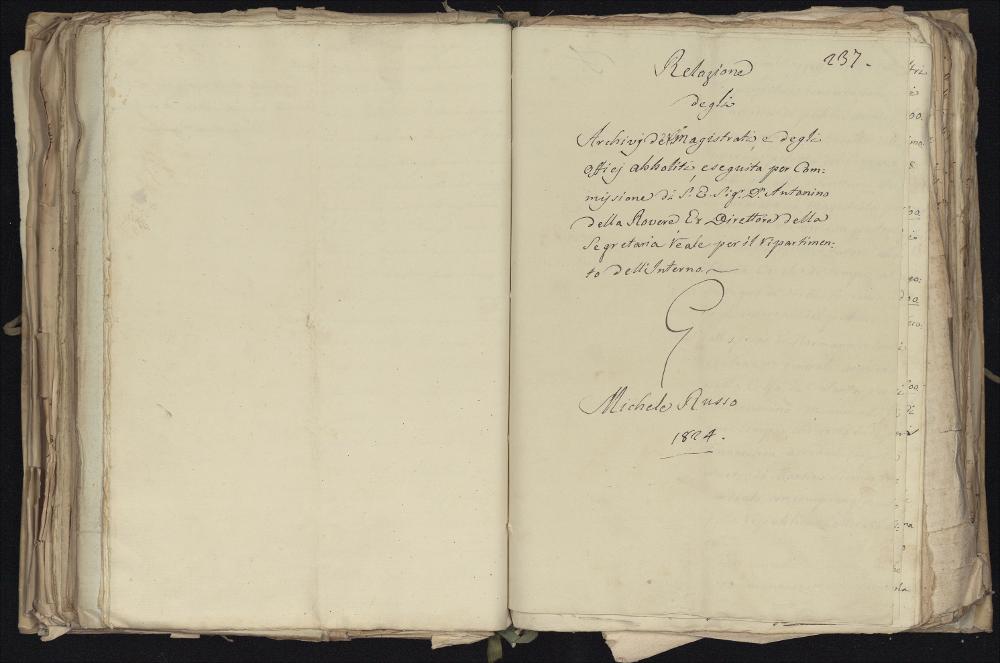 237.
Relazione
degli
Archivj de' Magistrati, e degli
officj abboliti, eseguita per Com:
missione di S. E. Sigr. Dn. Antonino
della Rovere, Ex Direttore della
Segretaria reale per il ripartimen:
to dell'Interno
Michele Russo
1824.